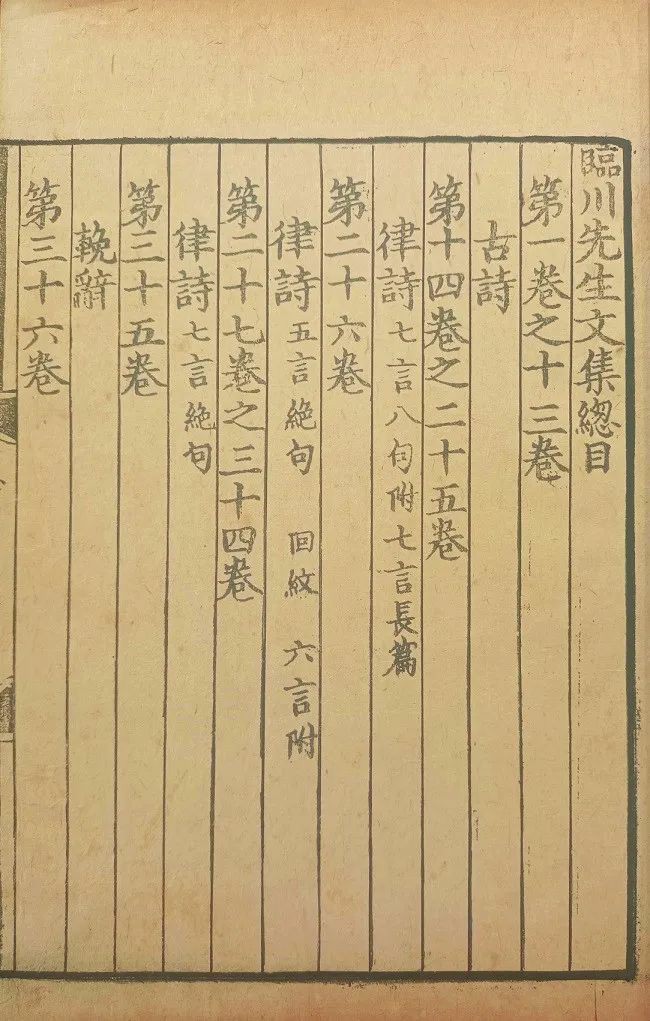 臨川先生文集緫目
第一卷之十三卷
古詩
第十四卷之二十五卷
律詩 七言八句附七言長篇
第二十六卷
律詩 五言絶句 回紋 六言附
第二十七卷之三十四卷
律詩 七言絶句
第三十五卷
輓辭
第三十六卷